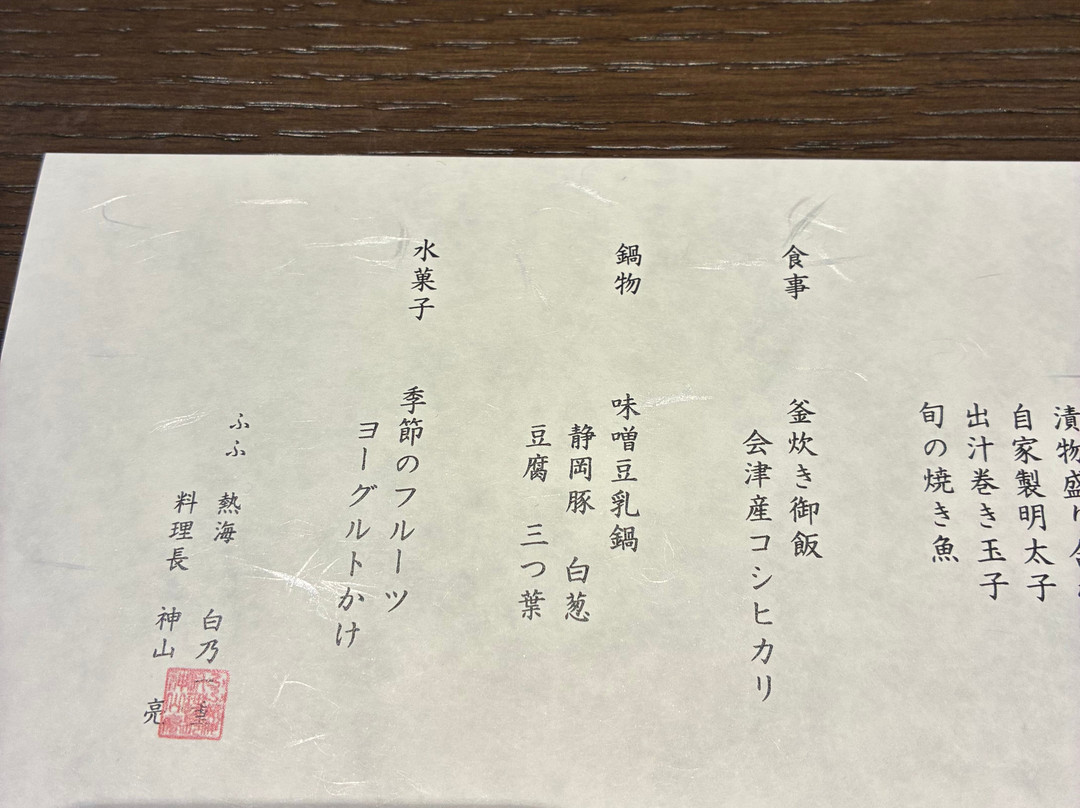 漬物盛り合
自家製明太子
出汁巻き玉子
旬の焼き魚
食事 釜炊き御飯
会津産コシヒカリ
鍋物 味噌豆乳鍋
静岡豚 白葱
豆腐 三つ葉
水菓子 季節のフルーツ
ヨーグルトかけ
ふふ 熱海 白乃一重
料理長 神山 亮